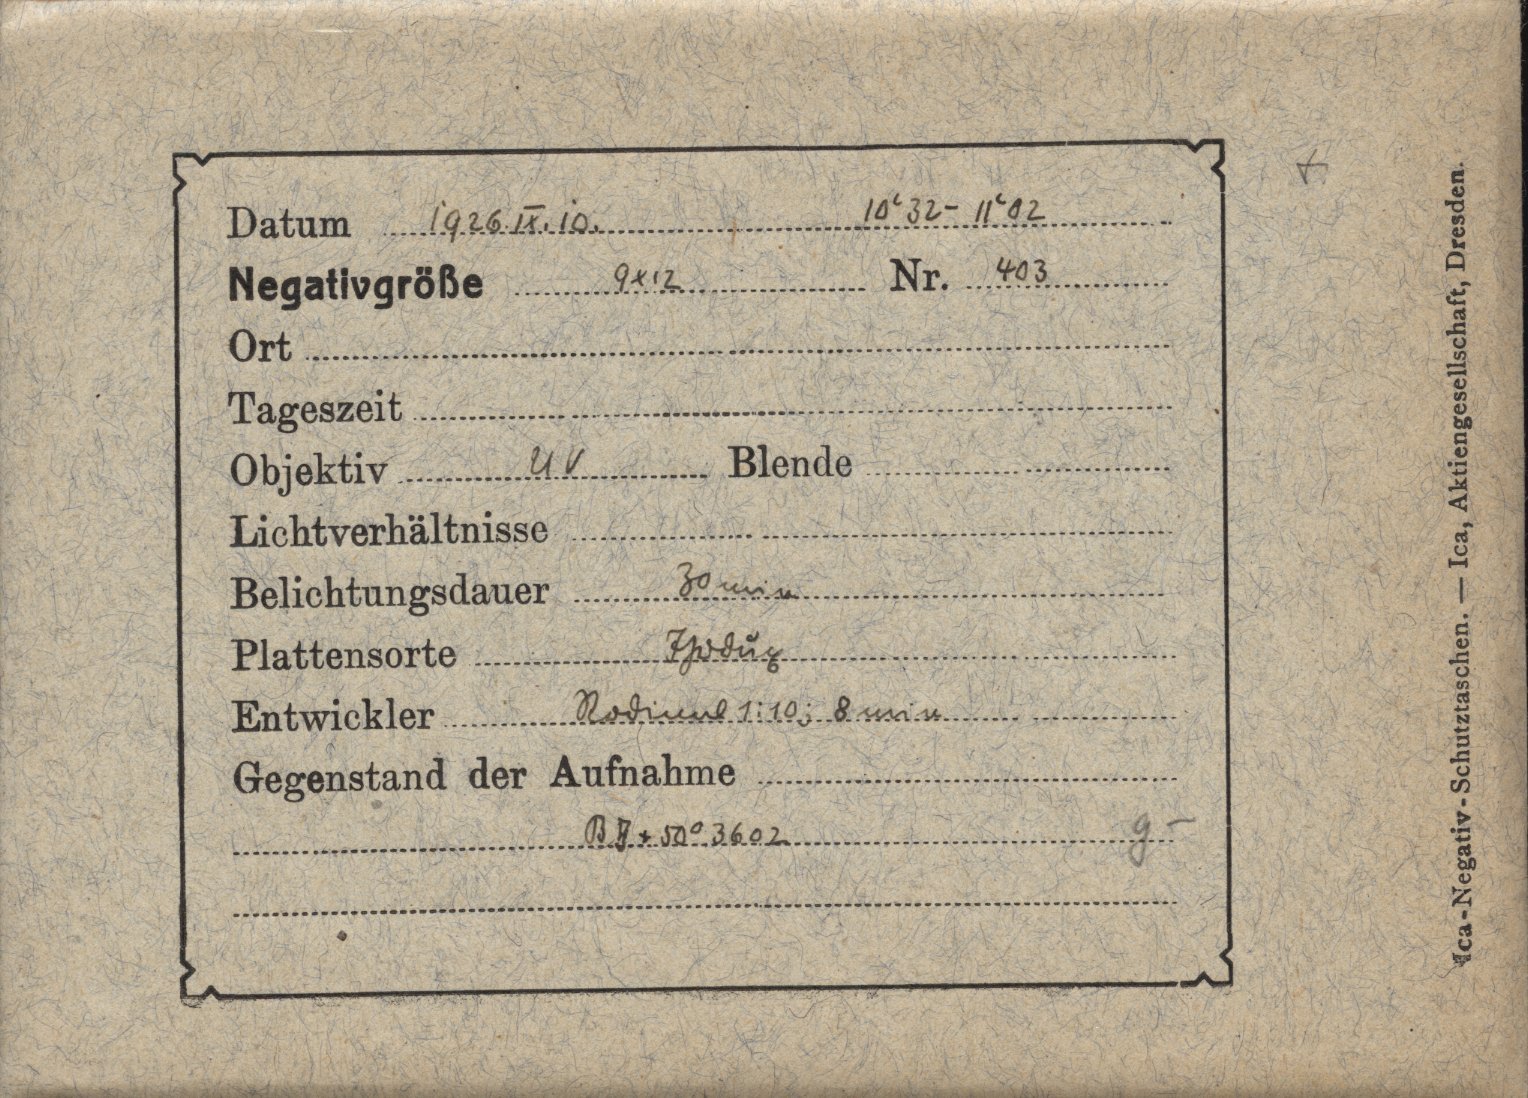 Datum 1926 IX. 10. 10ʰ32 - 11ʰ02
Negativgröße 9x12 Nr. 403
Ort
Tageszeit
Objektiv UV Blende
Lichtverhältnisse
Belichtungsdauer 30 min
Plattensorte
Entwickler Rodinal 1:10; 8 min
Gegenstand der Aufnahme
BD + 50° 3602 g -
+
Ica-Negativ-Schutztaschen. — Ica, Aktiengesellschaft, Dresden.